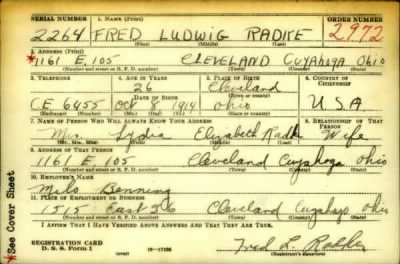 SERIAL NUMBER 1. NAME (Print) ORDER NUMBER
2264 FRED LUDWIG RADKE 2972
(First) (Middle) (Last)
2. ADDRESS (Print)
*1161 E. 105 CLEVELAND CUYAHOGA OHIO
(Number and street or R. F. D. number) (Town) (County) (State)
3. TELEPHONE 4. AGE IN YEARS 5. PLACE OF BIRTH 6. COUNTRY OF CITIZENSHIP
26 Cleveland
DATE OF BIRTH (Town or county)
CE 6455 Oct 8 1914 Ohio U S A
(Exchange) (Number) (Mo.) (Day) (Yr.) (State or country)
7. NAME OF PERSON WHO WILL ALWAYS KNOW YOUR ADDRESS 8. RELATIONSHIP OF THAT PERSON
Mrs. Lydia Elizabeth Radke Wife
(Mr., Mrs., Miss) (First) (Middle) (Last)
9. ADDRESS OF THAT PERSON
1161 E. 105 Cleveland Cuyahoga Ohio
(Number and street or R. F. D. number) (Town) (County) (State)
10. EMPLOYER'S NAME
Milo Benning
11. PLACE OF EMPLOYMENT OR BUSINESS
1515 East 36 Cleveland Cuyahoga Ohio
(Number and street or R. F. D. number) (Town) (County) (State)
I AFFIRM THAT I HAVE VERIFIED ABOVE ANSWERS AND THAT THEY ARE TRUE.
REGISTRATION CARD
D. S. S. Form 1 (over) Fred L. Radke
(Registrant's signature)
*See Cover Sheet